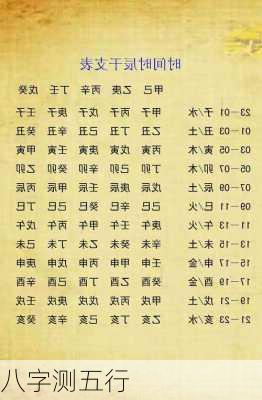 时间时辰干支表
甲己 乙庚 丙辛 丁壬 戊癸
23—01 子/水 甲子 丙子 戊子 庚子 壬子
01—03 丑/土 乙丑 丁丑 己丑 辛丑 癸丑
03—05 寅/木 丙寅 戊寅 庚寅 壬寅 甲寅
05—07 卯/木 丁卯 己卯 辛卯 癸卯 乙卯
07—09 辰/土 戊辰 庚辰 壬辰 甲辰 丙辰
09—11 巳/火 己巳 辛巳 癸巳 乙巳 丁巳
11—13 午/火 庚午 壬午 甲午 丙午 戊午
13—15 未/土 辛未 癸未 乙未 丁未 己未
15—17 申/金 壬申 甲申 丙申 戊申 庚申
17—19 酉/金 癸酉 乙酉 丁酉 己酉 辛酉
19—21 戌/土 甲戌 丙戌 戊戌 庚戌 壬戌
21—23 亥/水 乙亥 丁亥 己亥 辛亥 癸亥
八字测五行